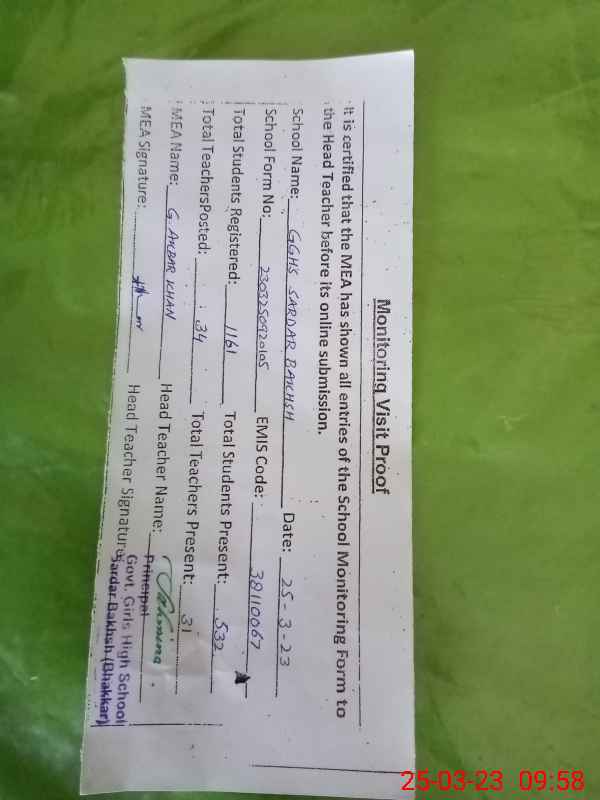 Monitoring Visit Proof
It is certified that the MEA has shown all entries of the School Monitoring Form to
the Head Teacher before its online submission.
School Name: GGHS SARDAR BAKHSH Date: 25-3-23
School Form No: 2303250920105 EMIS Code: 38110067
Total Students Registered: 1161 Total Students Present: 532
Total TeachersPosted: 34 Total Teachers Present: 31
MEA Name: G. AKBAR KHAN Head Teacher Name: Tahmina
MEA Signature: Head Teacher Signature:
Principal
Govt. Girls High School
Sardar Bakhsh (Bhakkar)
25-03-23 09:58